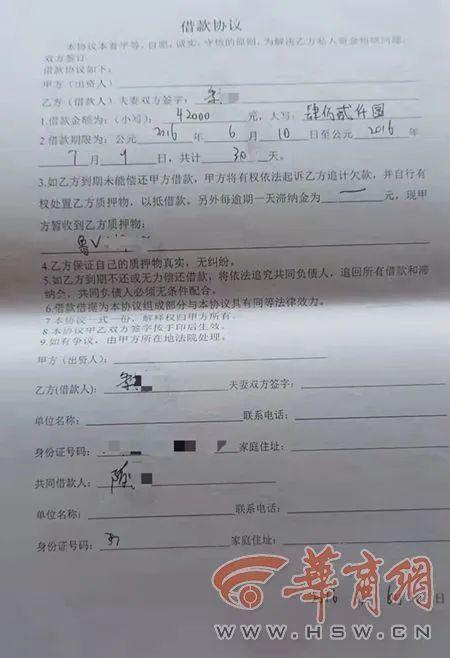 借款协议
本协议本着平等、自愿、诚实、守信的原则，为解决乙方私人资金短缺问题，
双方签订
借款协议如下：
甲方（出资人）
乙方（借款人）夫妻双方签字：
1.借款金额为：（小写）：42000 元，大写：肆万贰仟圆
2.借款期限为：公元 2016 年 6 月 10 日至公元 2016 年
7 月 9 日，共计 30 天。
3.如乙方到期未能偿还甲方借款，甲方将有权依法起诉乙方追讨欠款，并自行有
权处置乙方质押物，以抵借款。另外每逾期一天滞纳金为 元，现甲
方暂收到乙方质押物：
鲁V
4.乙方保证自己的质押物真实，无纠纷。
5.如乙方到期不还或无力偿还借款，将依法追究共同负债人，追回所有借款和滞
纳金，共同负债人必须无条件配合。
6.借款借据为本协议组成部分与本协议具有同等法律效力。
7.本协议一式一份，解释权归甲方所有。
8.本协议甲乙双方签字按手印后生效。
9.如有争议，由甲方所在地法院处理。
甲方（出资人）：
乙方(借款人)： 夫妻双方签字：
单位名称： 联系电话：
身份证号码： 家庭住址：
共同借款人：陈
单位名称： 联系电话：
身份证号码： 家庭住址：
日
华商网
WWW.HSW.CN